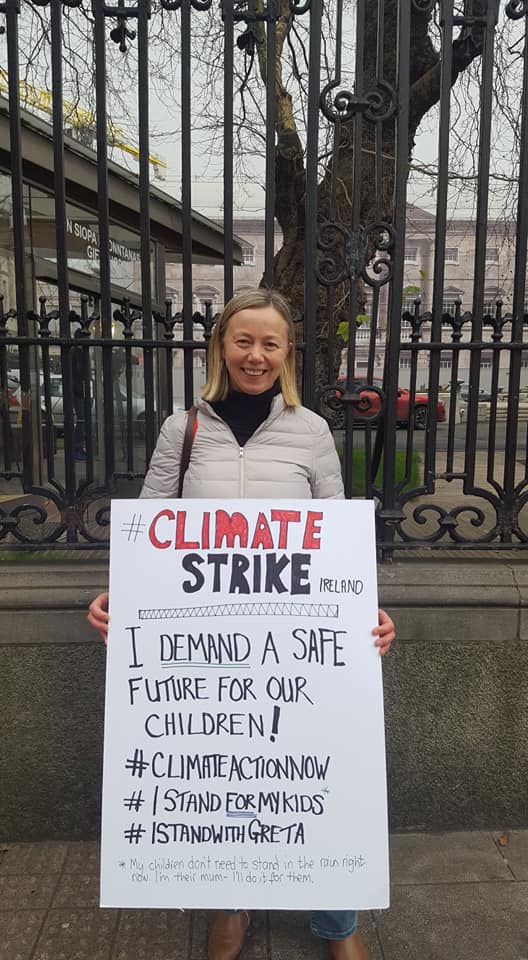 N SIOPA
GIF
#CLIMATE
STRIKE IRELAND
I DEMAND A SAFE
FUTURE FOR OUR
CHILDREN!
#CLIMATEACTIONNOW
#ISTANDFORMYKIDS*
#ISTANDWITHGRETA
* My children don't need to stand in the rain right
now. I'm their mum - I'll do it for them.